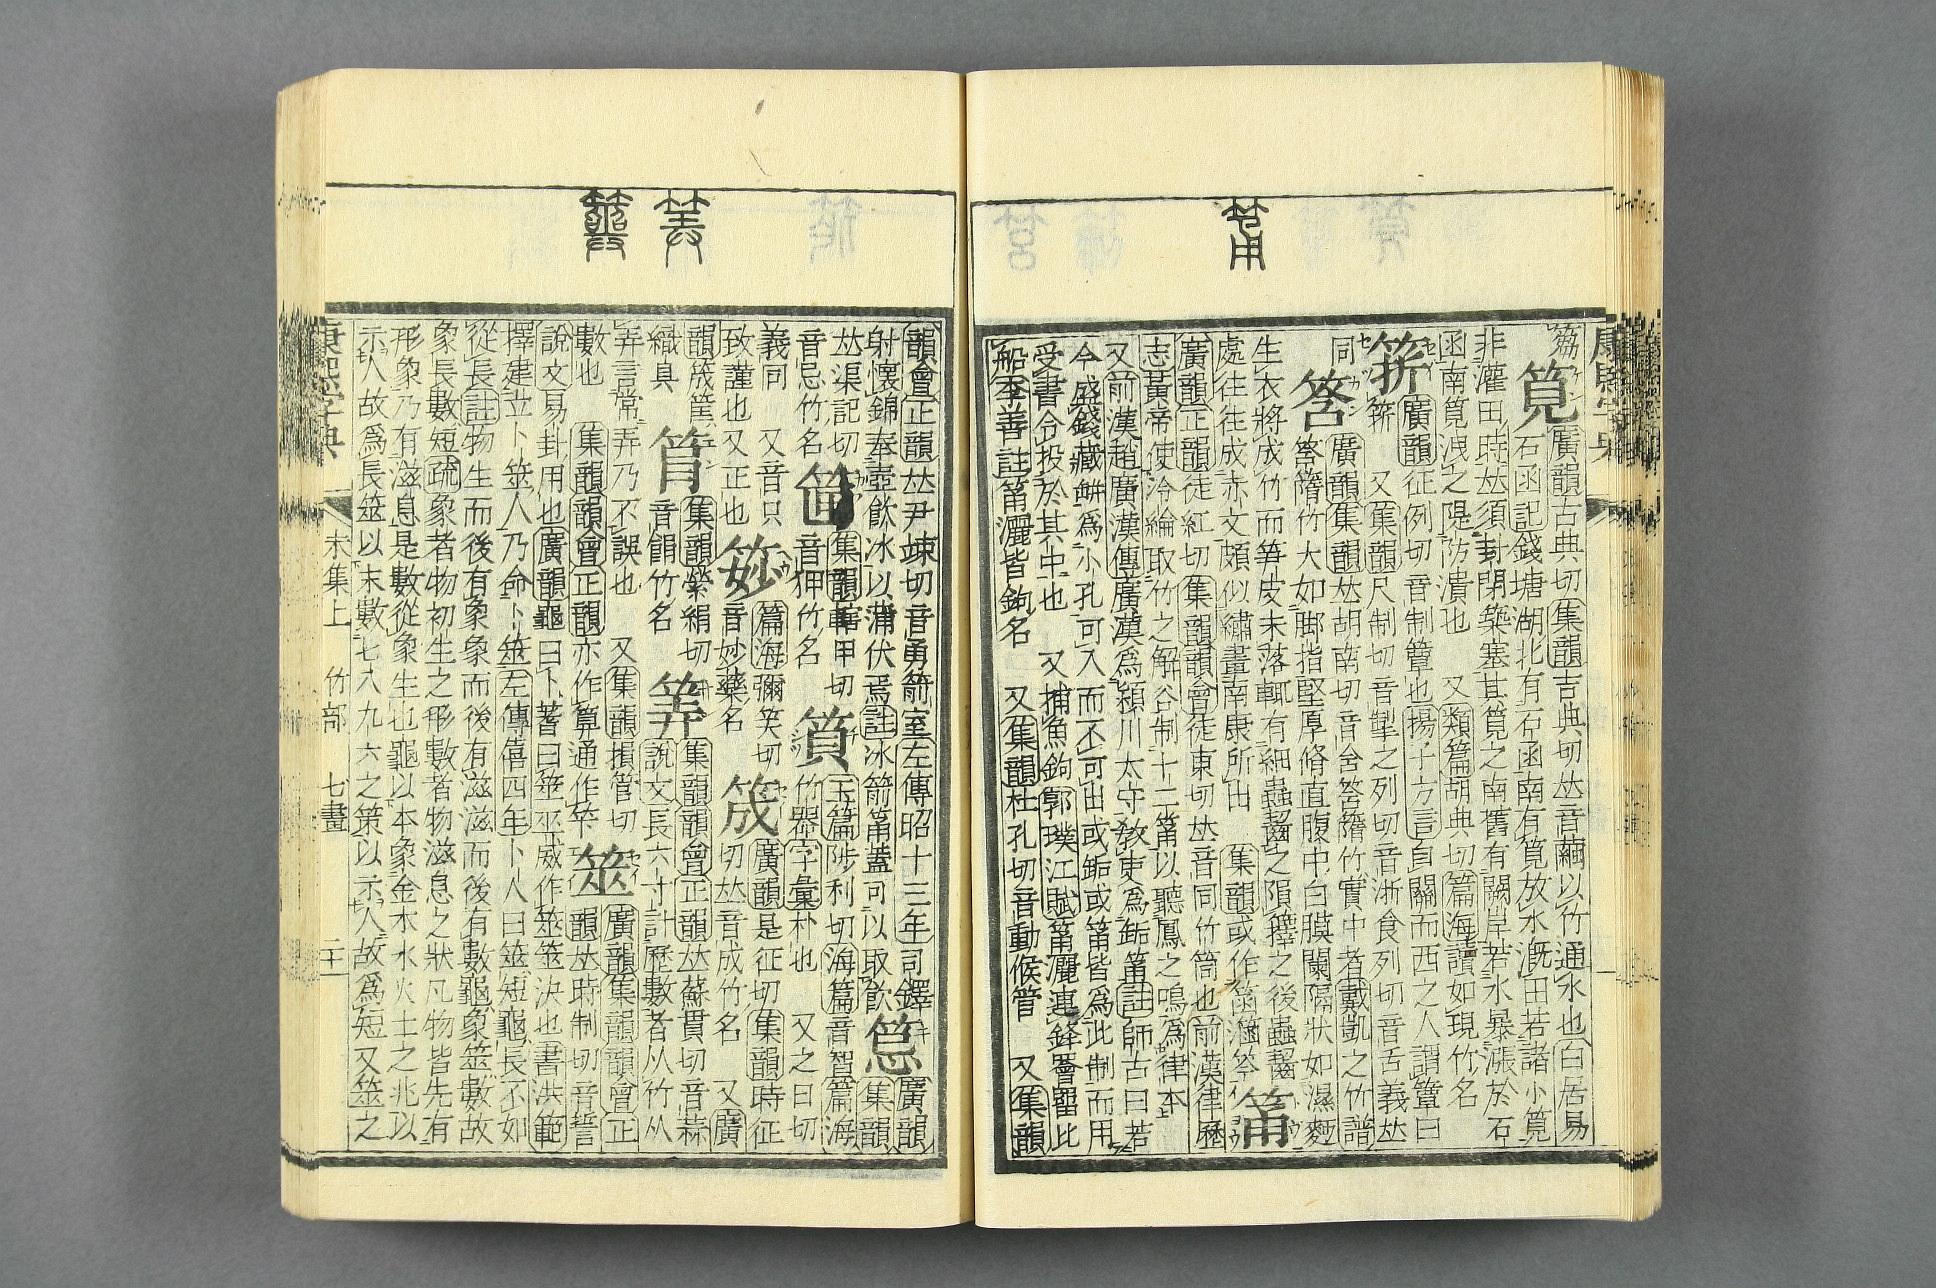 筩
康熙字典
筯
筧 廣韻古典切集韻吉典切𠀤音繭以竹通水也白居易
石函記錢塘湖北有石函南有筧放水漑田若諸小筧
非灌田時𠀤須封閉築塞其筧之南舊有闕岸若水暴漲於石
函南筧洩之隄防潰也 又類篇胡典切篇海讀如現竹名
廣韻征例切音制簟也揚子方言自關而西之人謂簟曰
又集韻尺制切音掣之列切音浙食列切音舌義𠀤
同 筨 廣韻集韻𠀤胡南切音含筨䉌竹實中者戴凱之竹譜
筨䉌竹大如脚指堅厚脩直腹中白膜闌隔狀如濕麪
生衣將成竹而筍皮未落輒有細蟲齧之隕籜之後蟲齧
處往往成赤文頗似繡畫南康所出 集韻或作箘涵笒 筩
廣韻正韻徒紅切集韻韻會徒東切𠀤音同竹筒也前漢律歷
志黃帝使泠綸取竹之解谷制十二筩以聽鳳之鳴爲律本
又前漢趙廣漢傳廣漢爲潁川太守敎吏爲缿筩註師古曰若
今盛錢藏缾爲小孔可入而不可出或缿或筩皆爲此制而用
受書令投於其中也 又捕魚鉤郭璞江賦筩灑連鋒罾䍡比
船李善註筩灑皆鉤名 又集韻杜孔切音動候管 又集韻
韻會正韻𠀤尹竦切音勇箭室左傳昭十三年司鐸
射懷錦奉壺飮冰以蒲伏焉註冰箭筩蓋可以取飮 筥 廣韻集韻
𠀤渠記切音忌竹名 集韻轄甲切音狎竹名 篇海
玉篇陟利切海篇音智 竹器字彙朴也 又之日切
義同 又音只 篇海彌笑切音妙藥名
致謹也又正也 筬 廣韻是征切集韻時征切𠀤音成竹名 又廣
韻筬筐織具 筲 集韻縈絹切音餶竹名
筭 集韻韻會正韻𠀤蘇貫切音蒜說文長六寸計歷數者从竹从
弄言常弄乃不誤也 又集韻損管切
數也 集韻韻會正韻亦作算通作筞 筮 廣韻集韻韻會正韻𠀤時制切音誓
說文易卦用也廣韻龜曰卜蓍曰筮巫咸作筮筮決也書洪範
擇建立卜筮人乃命卜筮左傳僖四年卜人曰筮短龜長不如
從長註物生而後有象象而後有滋滋而後有數龜象筮數故
象長數短疏象者物初生之形數者物滋息之狀凡物皆先有
形象乃有滋息是數從象生也龜以本象金木水火土之兆以
示人故爲長筮以末數七八九六之策以示人故爲短又筮之
康熙字典 未集上 竹部 七畫 二十一